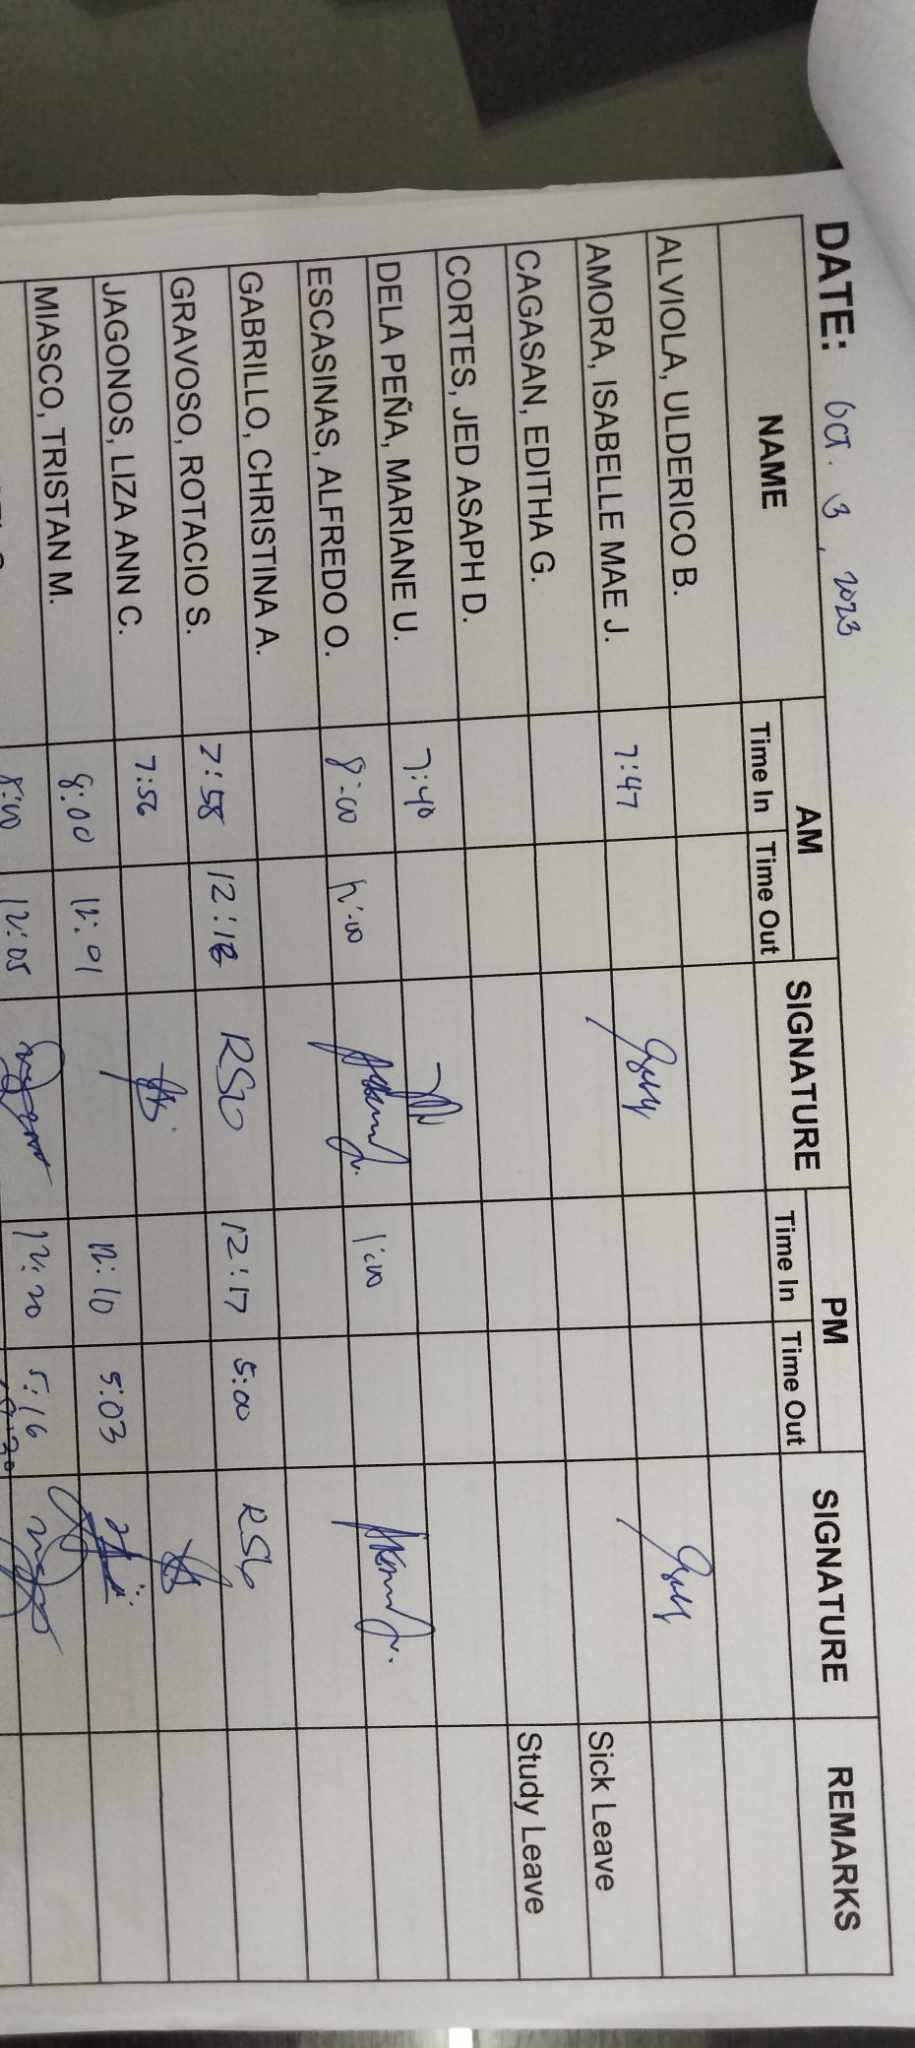 DATE: Oct. 3, 2023
NAME AM SIGNATURE PM SIGNATURE REMARKS
Time In Time Out Time In Time Out
ALVIOLA, ULDERICO B.
AMORA, ISABELLE MAE J. 7:47
CAGASAN, EDITHA G. Sick Leave
CORTES, JED ASAPH D. Study Leave
DELA PEÑA, MARIANE U. 7:40
ESCASINAS, ALFREDO O. 8:00 12:00 1:00
GABRILLO, CHRISTINA A.
GRAVOSO, ROTACIO S. 7:58 RSG 12:17 5:00 RSG
JAGONOS, LIZA ANN C. 7:56
MIASCO, TRISTAN M. 8:00 12:01 12:10 5:03
8:00 12:05 12:20 5:16